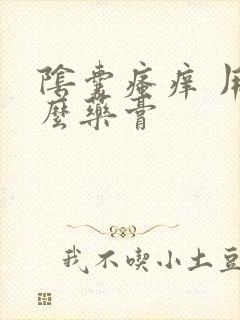 陰囊瘙痒 用
麼藥膏
我不喫小土豆